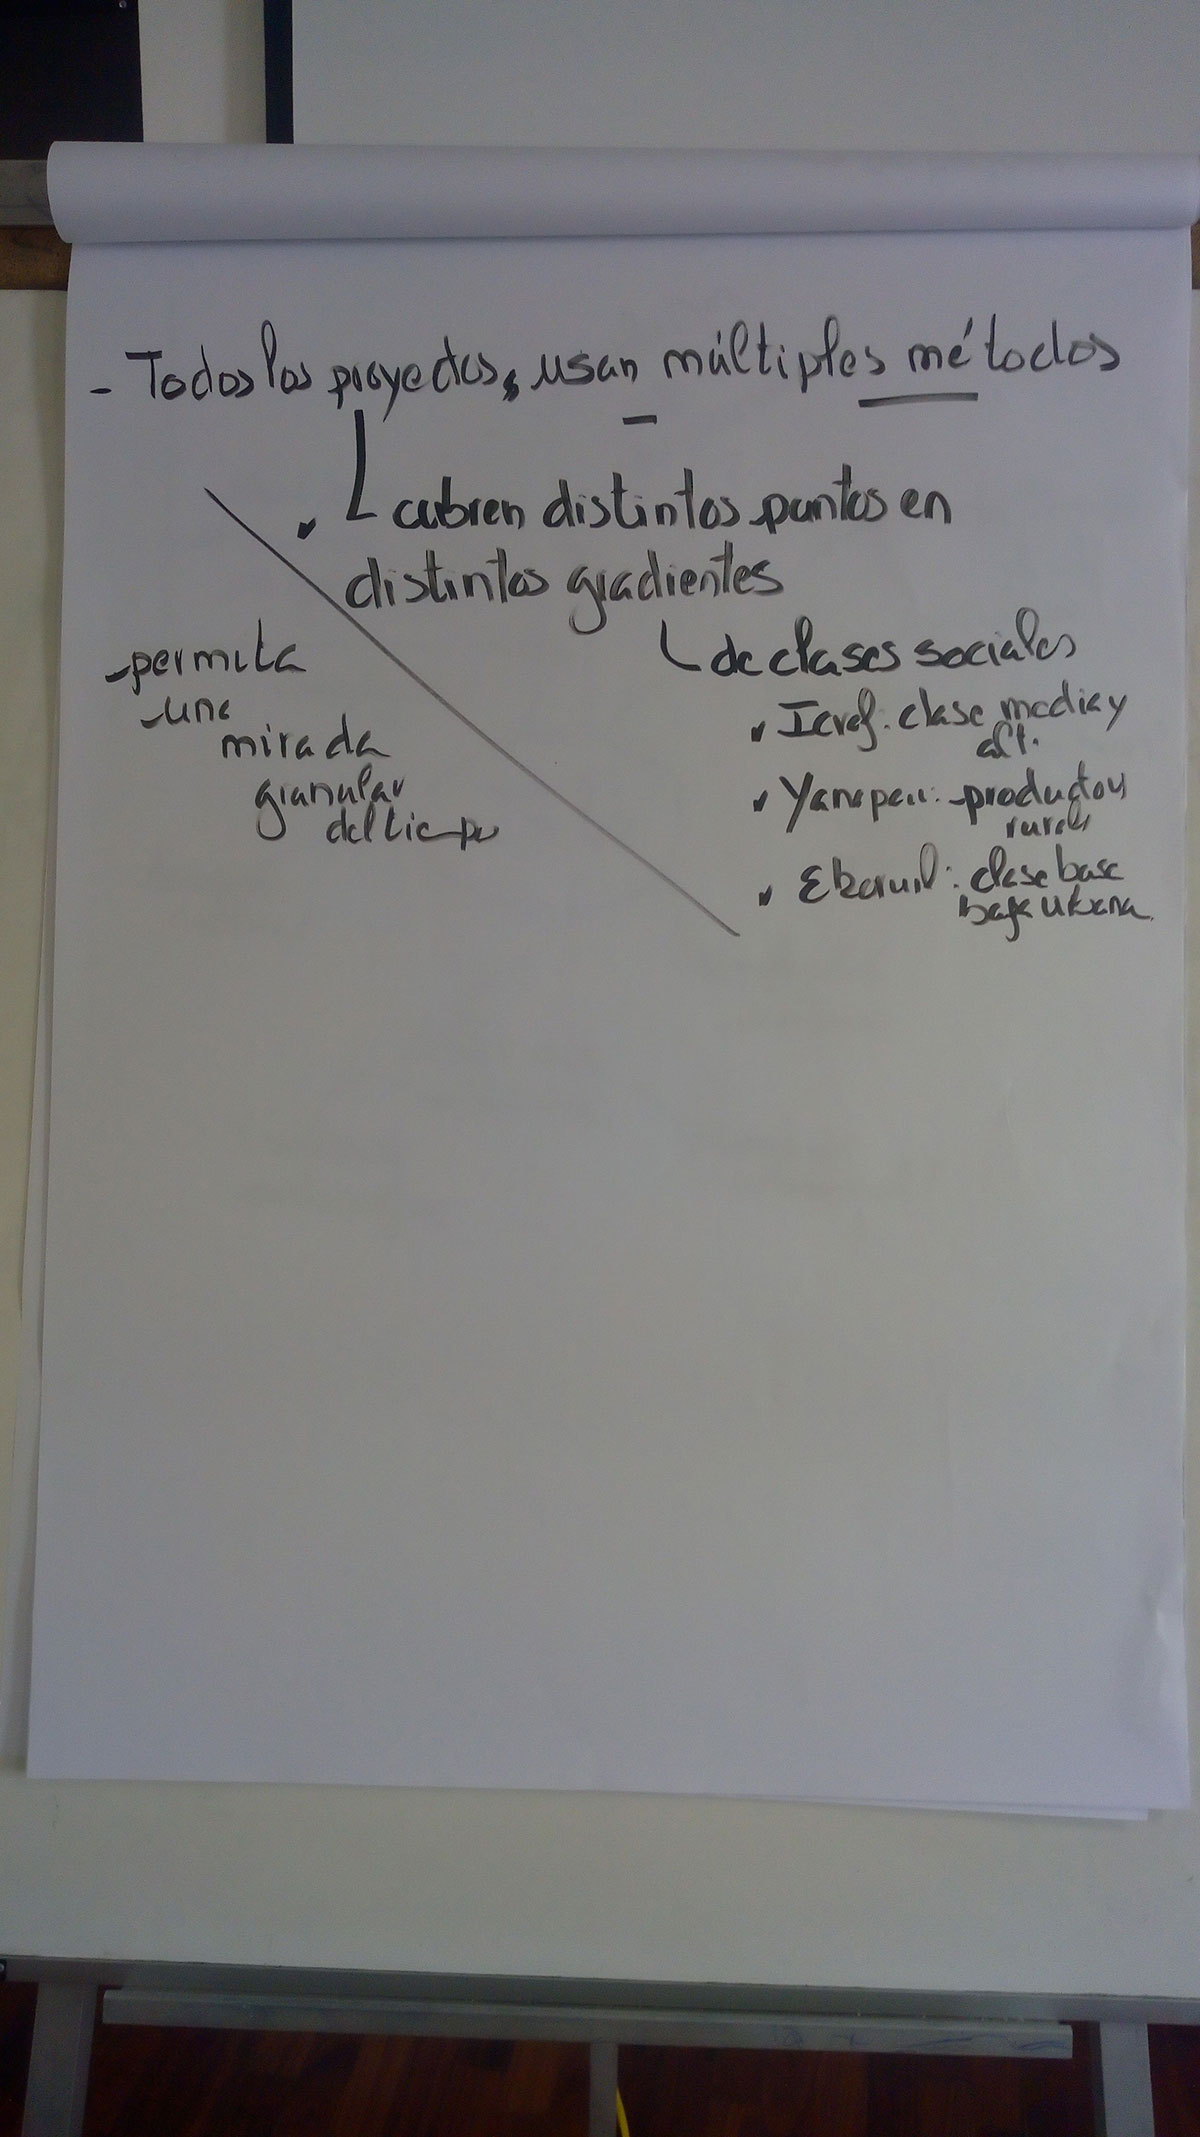 - Todos los proyectos, usan múltiples métodos
cubren distintos puntos en
distintos gradientes
de clases sociales
clase media y
alt.
productors
rurales
clase base
baja urbana
- permita
- una
mirada
granular
del tiempo